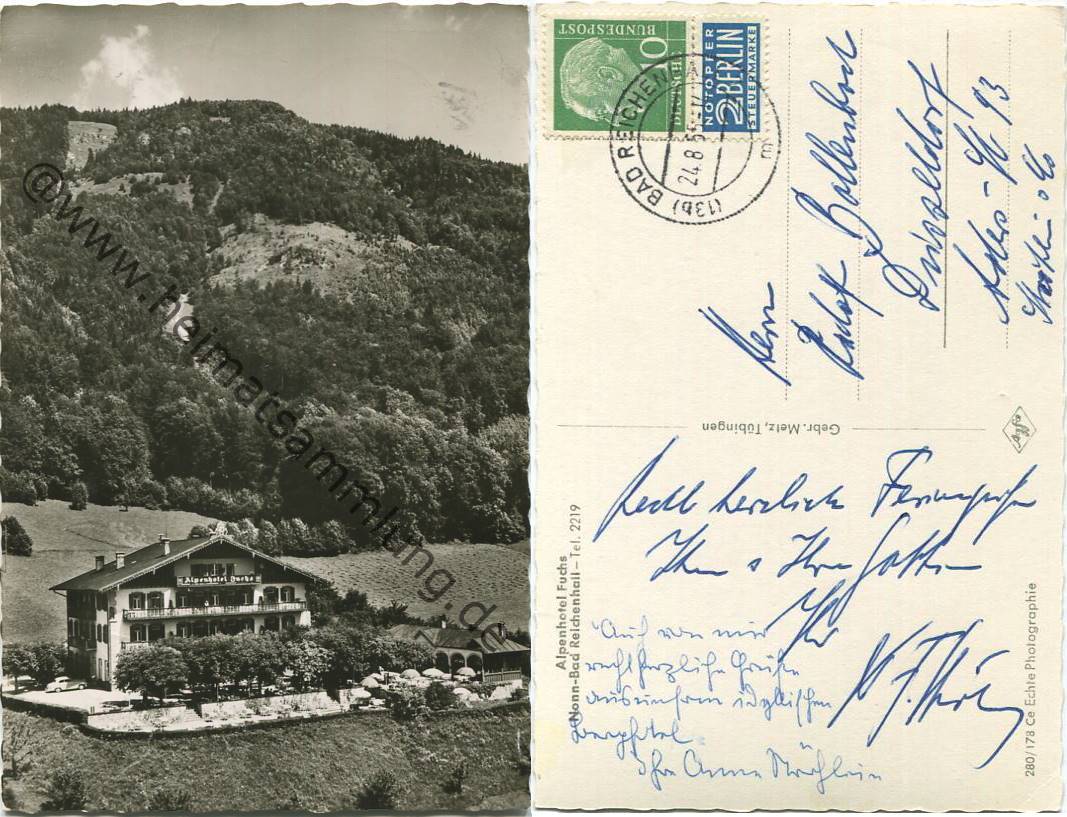 Alpenhotel Fuchs
@www.heimatsammlung.de
DEUTSCHE
BUNDESPOST
10
NOTOPFER
2 BERLIN
STEUERMARKE
(13b) BAD REICHENHALL
24.8.5
Herrn
Rudolf Bollenbeck
Düsseldorf
93
Gebr. Metz, Tübingen
Alpenhotel Fuchs
Nonn-Bad Reichenhall – Tel. 2219
Recht herzliche Feriengrüße
Ihnen u Ihrer Gattin
Ihr
Auch von mir
recht herzliche Grüße
aus unserem idyllischen
Berghotel
Ihre Anna
280/178 Ce Echte Photographie